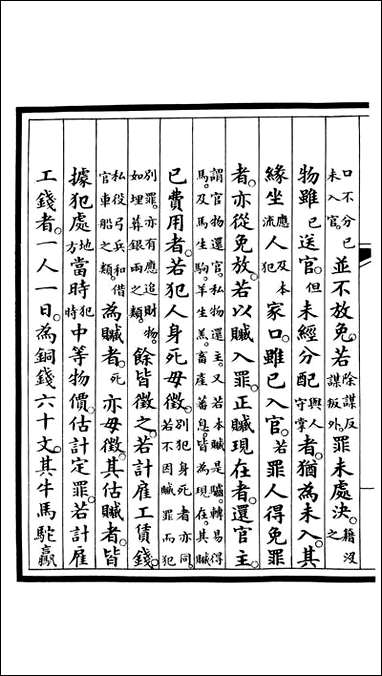 口不分已未入官。並不放免。若除謀反謀叛外。罪未處決。籍沒之
物雖已送官。但未經分配與人守掌者。猶為未入。其
緣坐應流人及本犯家口。雖已入官。若罪人得免罪
者。亦從免放。若以贓入罪。正贓現在者。還官主。
謂官物還官。私物還主。又若本贓是驢。轉易得
馬。及馬生駒。羊生羔。畜產蕃息。皆為現在。其贓
已費用者。若犯人身死毋徵。別犯身死者亦同。若不因贓罪而犯
別罪。亦有應追財物。如埋葬銀兩之類。餘皆徵之。若計雇工賃錢。
私役弓兵和借官車船之類。為贓者。死亦毋徵。其估贓者。皆
據犯處地方當時犯時中等物價。估計定罪。若計雇
工錢者。一人一日。為銅錢六十文。其牛馬駝驘